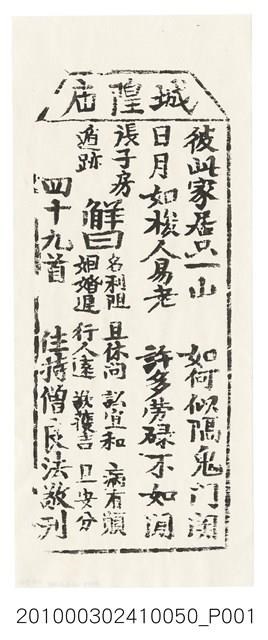 城隍庙
彼此家居只一山 如何似隔鬼門關
日月如梭人易老 許多勞碌不如閒
張子房
遁跡
解曰
名利阻 且休问 訟宜和 病有願
姻婚遲 行人遠 獲吉 且安分
四十九首 住持僧良法敬刊
201000302410050_P001